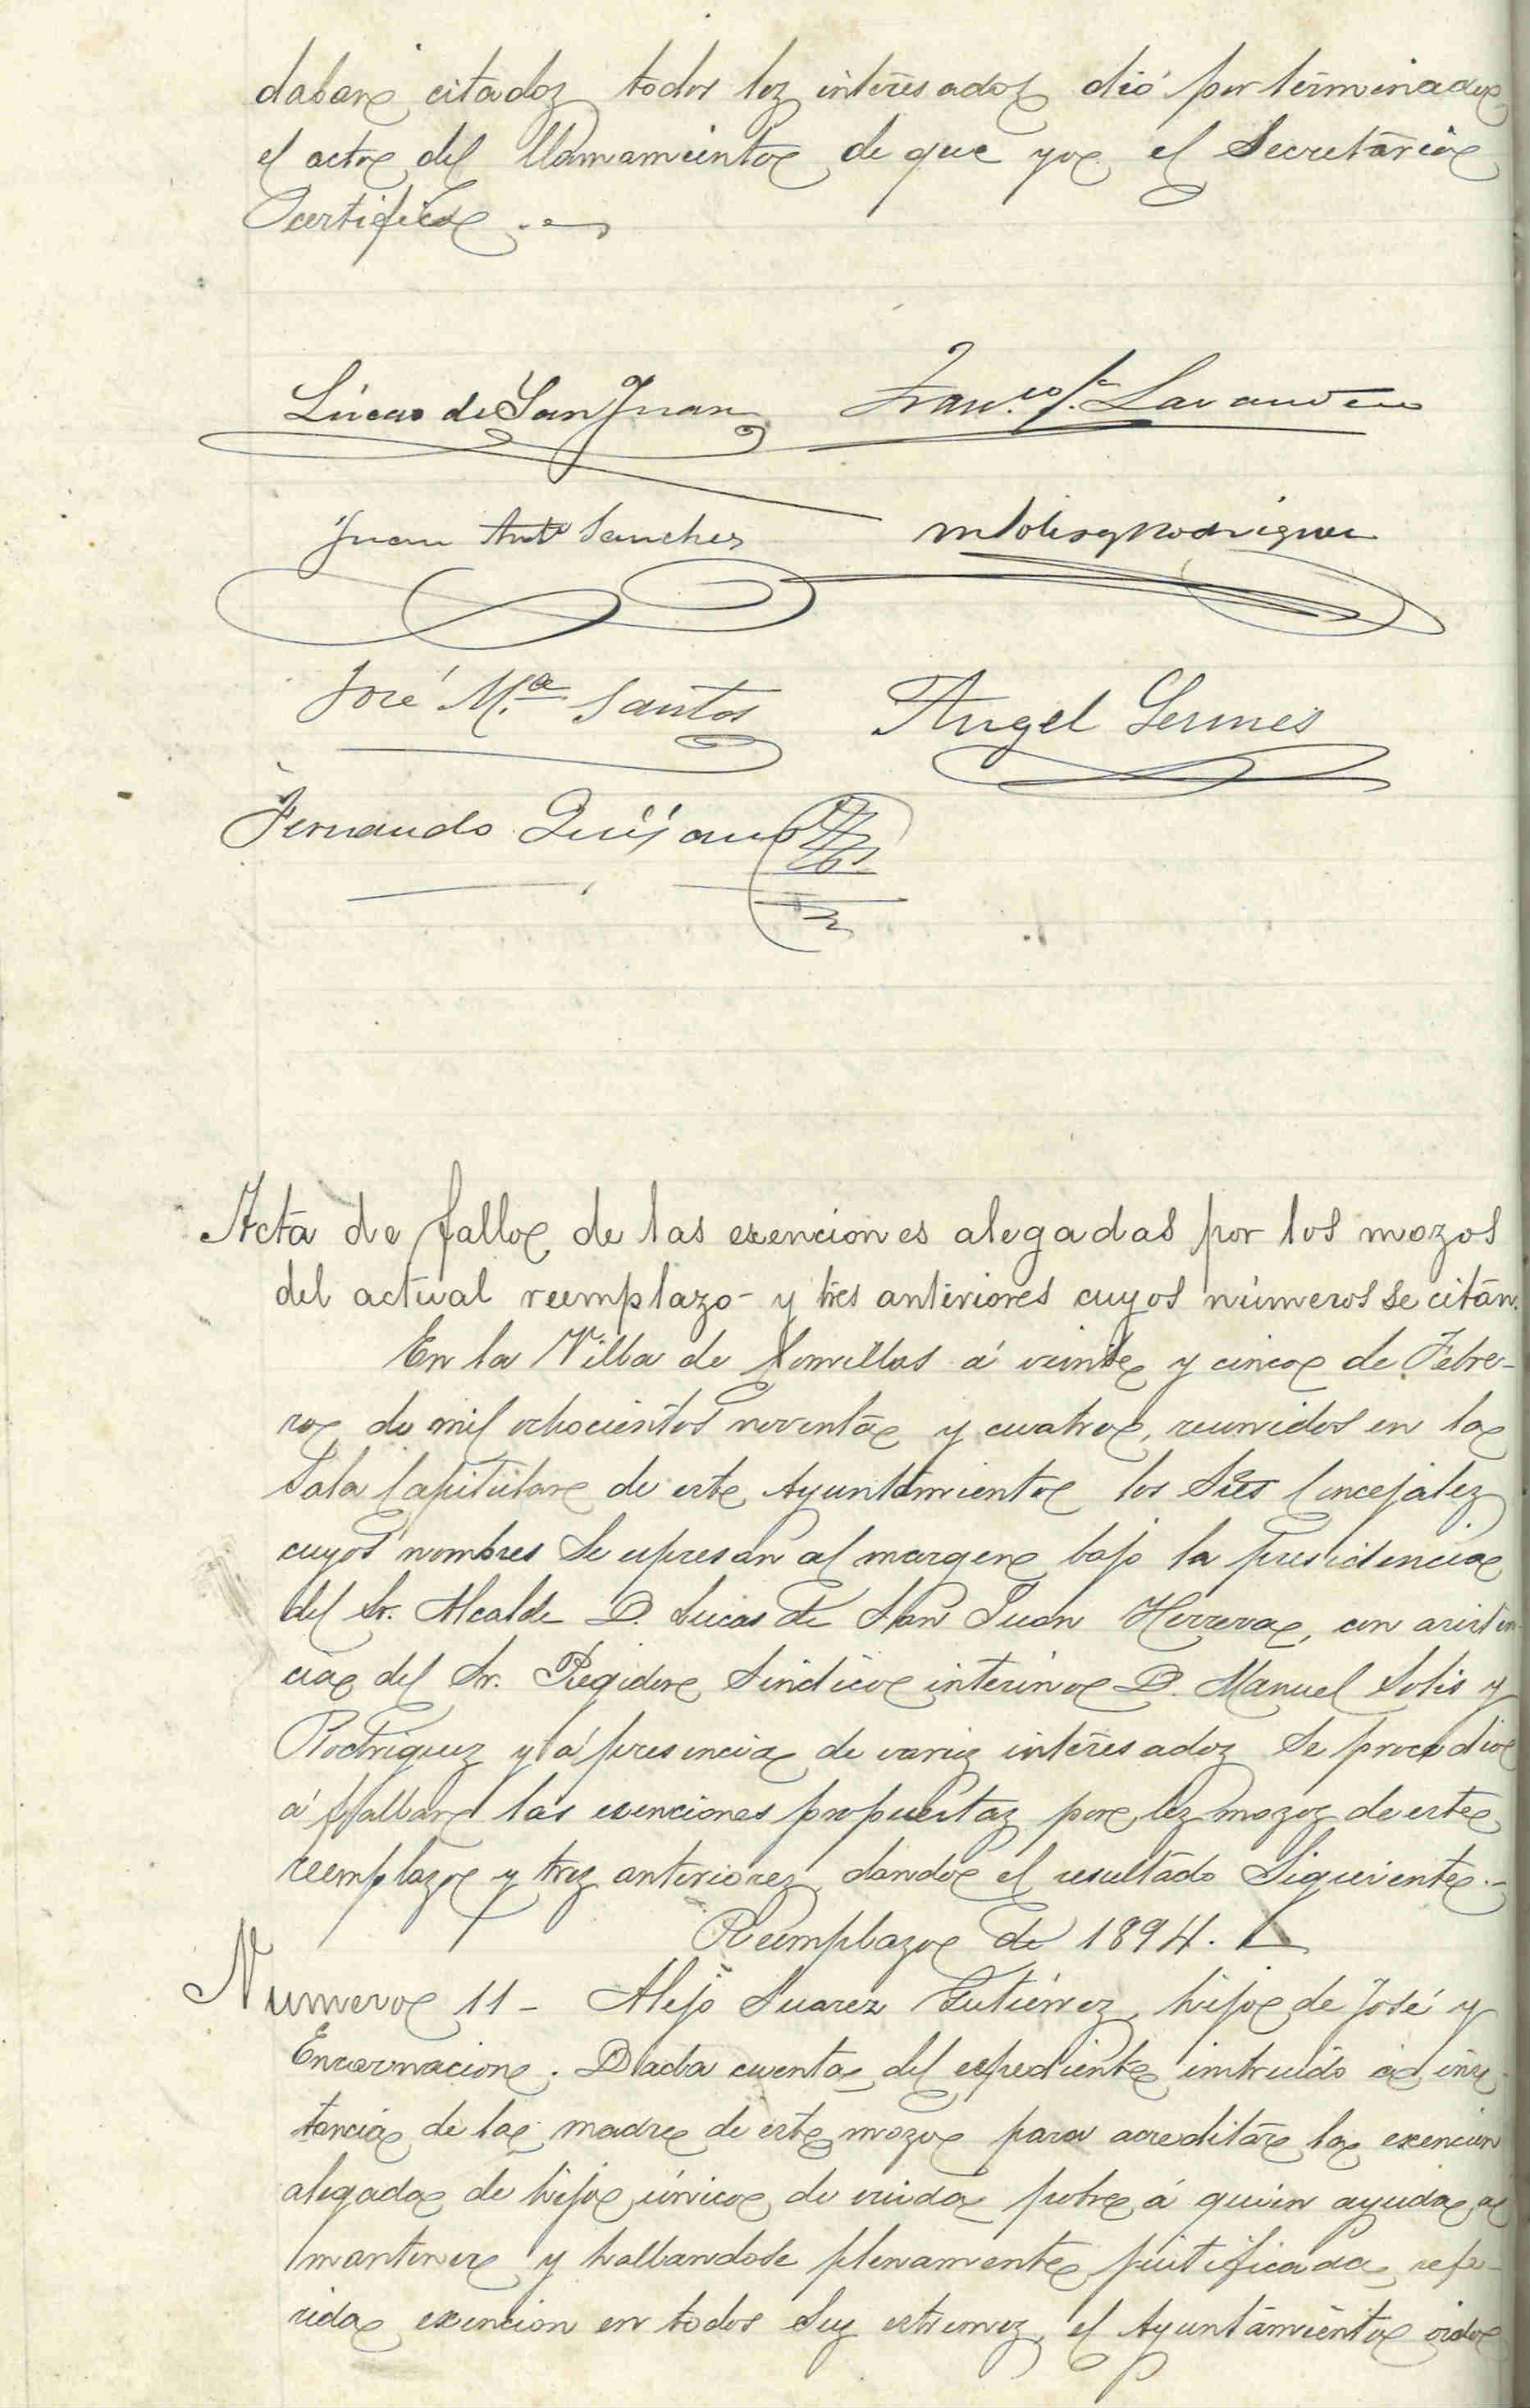 daban citados todos los interesados dió por terminado
el acto del llamamiento de que yo el Secretario
certifico.
Lúcas de San Juan Franco. Fz. Lavandera
Juan Anto Sanchez M Solis y Rodriguez
José M.a Santos Angel Germes
Fernando Quijano
Acta de fallo de las exenciones alegadas por los mozos
del actual reemplazo y tres anteriores cuyos números se citan.
En la Villa de Comillas á veinte y cinco de Febre-
ro de mil ochocientos noventa y cuatro, reunidos en la
Sala Capitular de este Ayuntamiento los Sres Concejales
cuyos nombres se espresan al margen bajo la presidencia
del Sr. Alcalde D. Lucas de San Juan Herrera, con asisten
cia del Sr. Regidor Sindico interino D. Manuel Solis y
Rodriguez y á presencia de varios interesados se procedio
á fallar las exenciones propuestas por los mozos de este
reemplazo y tres anteriores dando el resultado siguiente.-
Reemplazo de 1894.
Numero 11 - Alejo Suarez Gutiérrez, hijo de José y
Encarnacion. Dada cuenta del expediente instruido á ins
tancia de la madre de este mozo para acreditar la exencion
alegada de hijo único de viuda pobre á quien ayuda a
mantener y hallandose plenamente justificada refe-
rida exencion en todos sus estremos, el Ayuntamiento oido